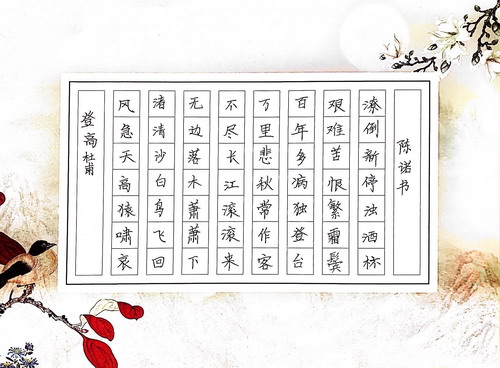 登高 杜甫
风急天高猿啸哀
渚清沙白鸟飞回
无边落木萧萧下
不尽长江滚滚来
万里悲秋常作客
百年多病独登台
艰难苦恨繁霜鬓
潦倒新停浊酒杯
陈诺书